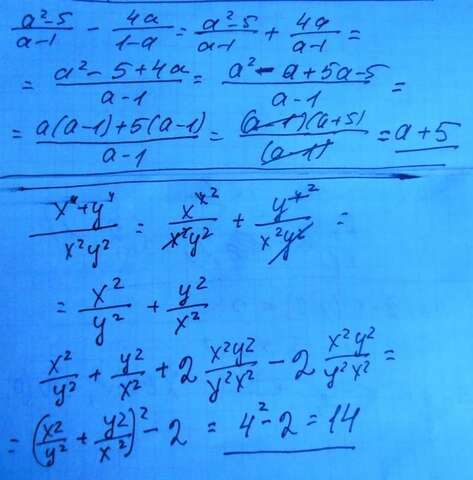 a²-5/a-1 - 4a/1-a = a²-5/a-1 + 4a/a-1 =
= a²-5+4a/a-1 = a²-a+5a-5/a-1 =
= a(a-1)+5(a-1)/a-1 = (a-1)(a+5)/(a-1) = a+5
x⁴+y⁴/x²y² = x⁴ ²/x²y² + y⁴ ²/x²y² =
= x²/y² + y²/x²
x²/y² + y²/x² + 2 x²y²/y²x² - 2 x²y²/y²x² =
= (x²/y² + y²/x²)² - 2 = 4² - 2 = 14